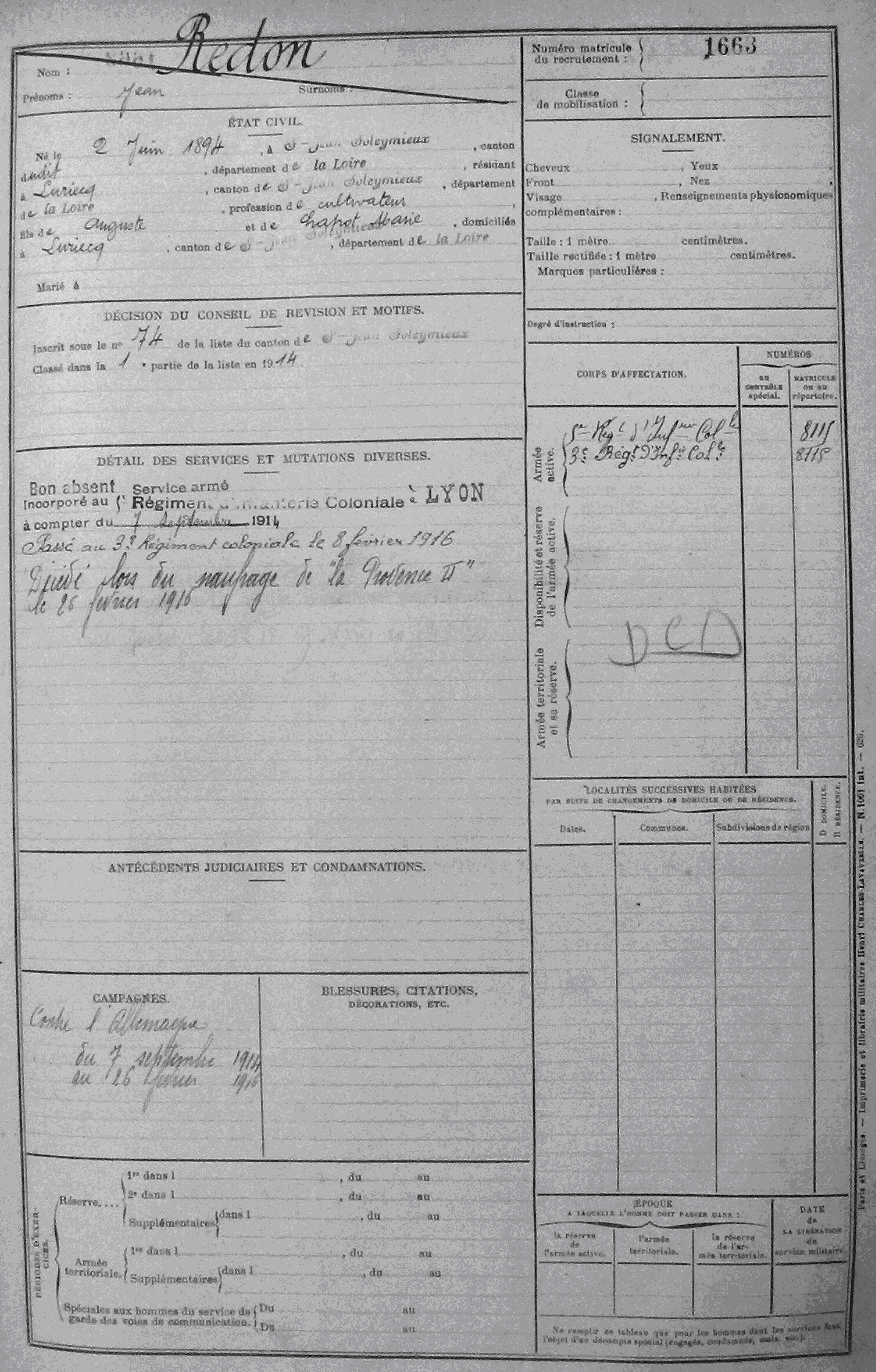 Nom : Redon
Prénoms : Jean Surnoms :
ÉTAT CIVIL.
Né le 2 Juin 1894, à St-Jean Soleymieux, canton
dudit, département de la Loire, résidant
à Luriecq, canton de St-Jean Soleymieux, département
de la Loire, profession de cultivateur
fils de Auguste et de Chapot Marie, domiciliés
à Luriecq, canton de St-Jean Soleymieux, département de la Loire
Marié à
DÉCISION DU CONSEIL DE REVISION ET MOTIFS.
Inscrit sous le no 74 de la liste du canton de St-Jean Soleymieux
Classé dans la 1e partie de la liste en 1914.
DÉTAIL DES SERVICES ET MUTATIONS DIVERSES.
Bon absent Service armé
Incorporé au Régiment d'Infanterie Coloniale à LYON
à compter du 7 septembre 1914
Passé au 3e Régiment coloniale le 8 février 1916
Décédé lors du naufrage de "la Provence II"
le 26 février 1916
ANTÉCÉDENTS JUDICIAIRES ET CONDAMNATIONS.
CAMPAGNES.
Contre l'Allemagne
du 7 septembre 1914
au 26 février 1916
BLESSURES, CITATIONS,
DÉCORATIONS, ETC.
PÉRIODES D'EXERCICES.
Réserve....
1re dans l , du au
2e dans l , du au
Supplémentaires dans l , du au
Armée territoriale.
1re dans l , du au
Supplémentaires dans l , du au
Spéciales aux hommes du service de garde des voies de communication.
Du au
Du au
Numéro matricule
du recrutement : 1663
Classe
de mobilisation :
SIGNALEMENT.
Cheveux , Yeux
Front , Nez ,
Visage , Renseignements physionomiques
complémentaires :
Taille : 1 mètre centimètres.
Taille rectifiée : 1 mètre centimètres.
Marques particulières :
Degré d'instruction :
CORPS D'AFFECTATION.
NUMÉROS
AU CONTRÔLE spécial.
MATRICULE OU AU répertoire.
Armée active.
5e Régt d'Infrie Colle 8115
3e Régt d'Infie Colle 8115
Disponibilité et réserve de l'armée active.
DCD
Armée territoriale et sa réserve.
LOCALITÉS SUCCESSIVES HABITÉES
PAR SUITE DE CHANGEMENTS DE DOMICILE OU DE RÉSIDENCE.
Dates. Communes. Subdivisions de région
D DOMICILE.
R RÉSIDENCE.
ÉPOQUE
A LAQUELLE L'HOMME DOIT PASSER DANS :
la réserve de l'armée active.
l'armée territoriale.
la réserve de l'armée territoriale.
DATE de LA LIBÉRATION du service militaire
Ne remplir ce tableau que pour les hommes dont les services font
l'objet d'un décompte spécial (engagés, condamnés, omis, etc.).
Paris et Limoges. — Imprimerie et librairie militaires Henri CHARLES-LAVAUZELLE. — N. 1061 int. — 626.